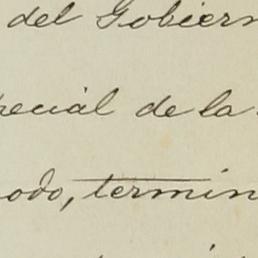 del Gobiern
pecial de la
odo, termin